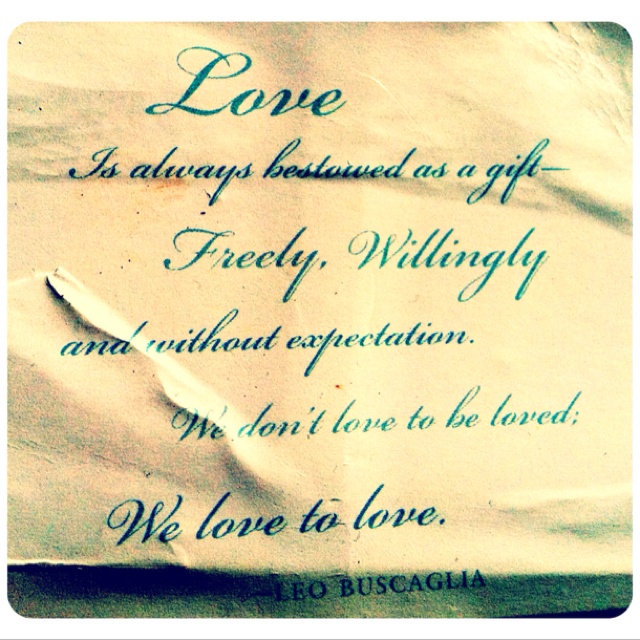 Love
Is always bestowed as a gift—
Freely, Willingly
and without expectation.
We don't love to be loved;
We love to love.
—LEO BUSCAGLIA